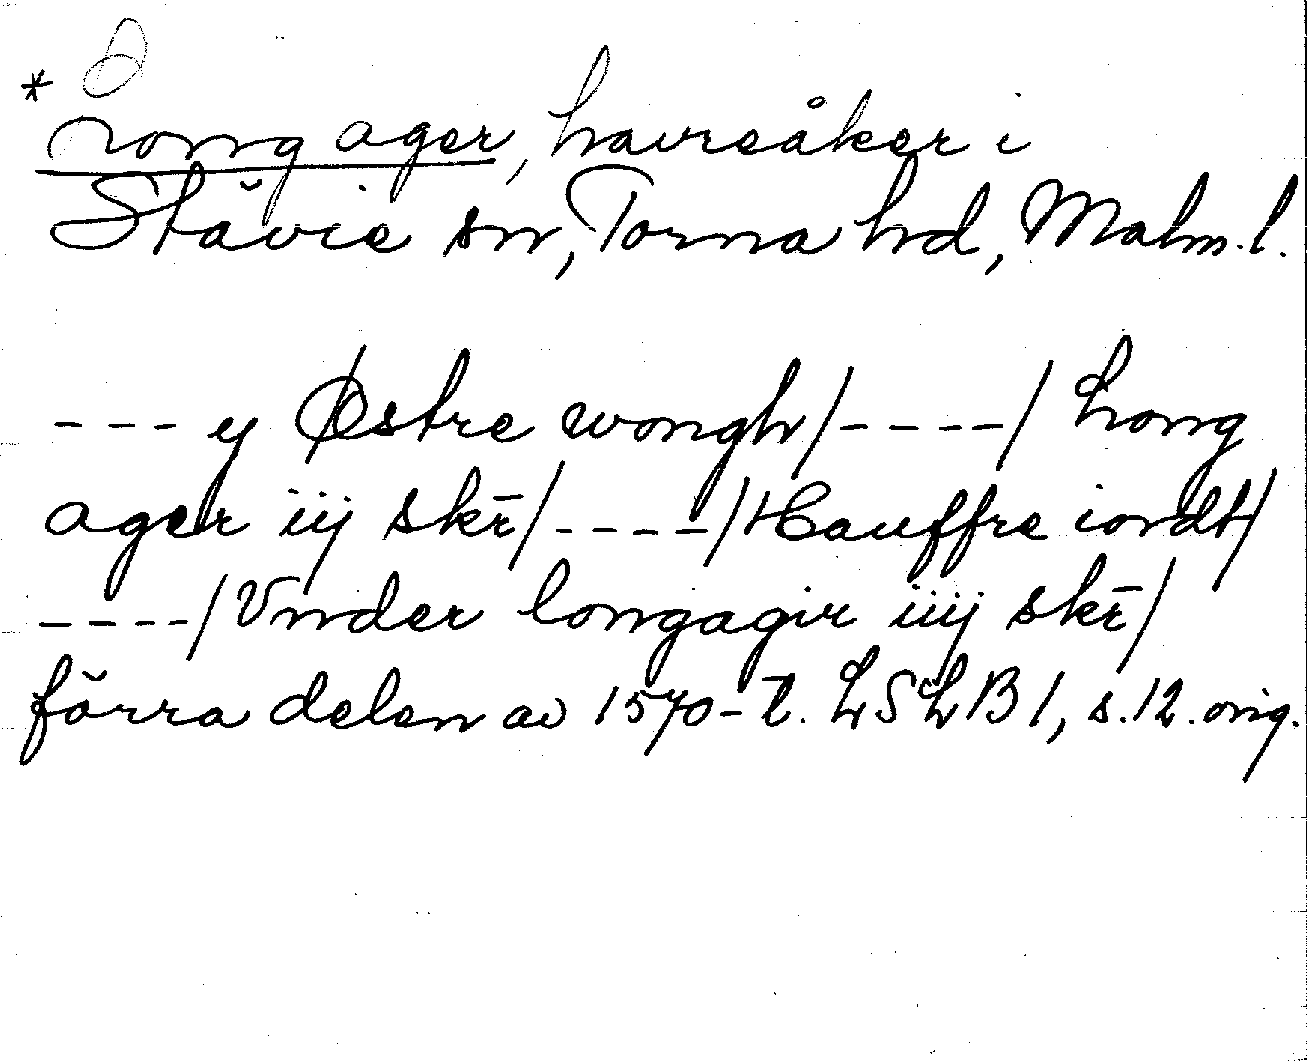 * Long ager, havreåker i
Stävie sn, Torna hd, Malm.l.
--- y Østre wongh/----/ Long
ager iij skē/----/Hauffre iordt/
----/Vnder longagir iiij skē/
förra delen av 1570-t. LSLB 1, s.12. orig.